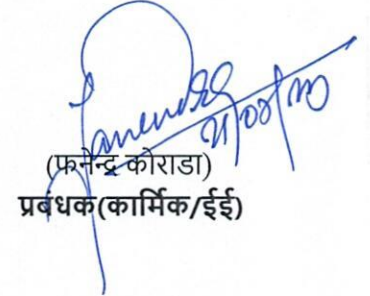 (फनेन्द्र कोराडा)
प्रबंधक(कार्मिक/ईई)